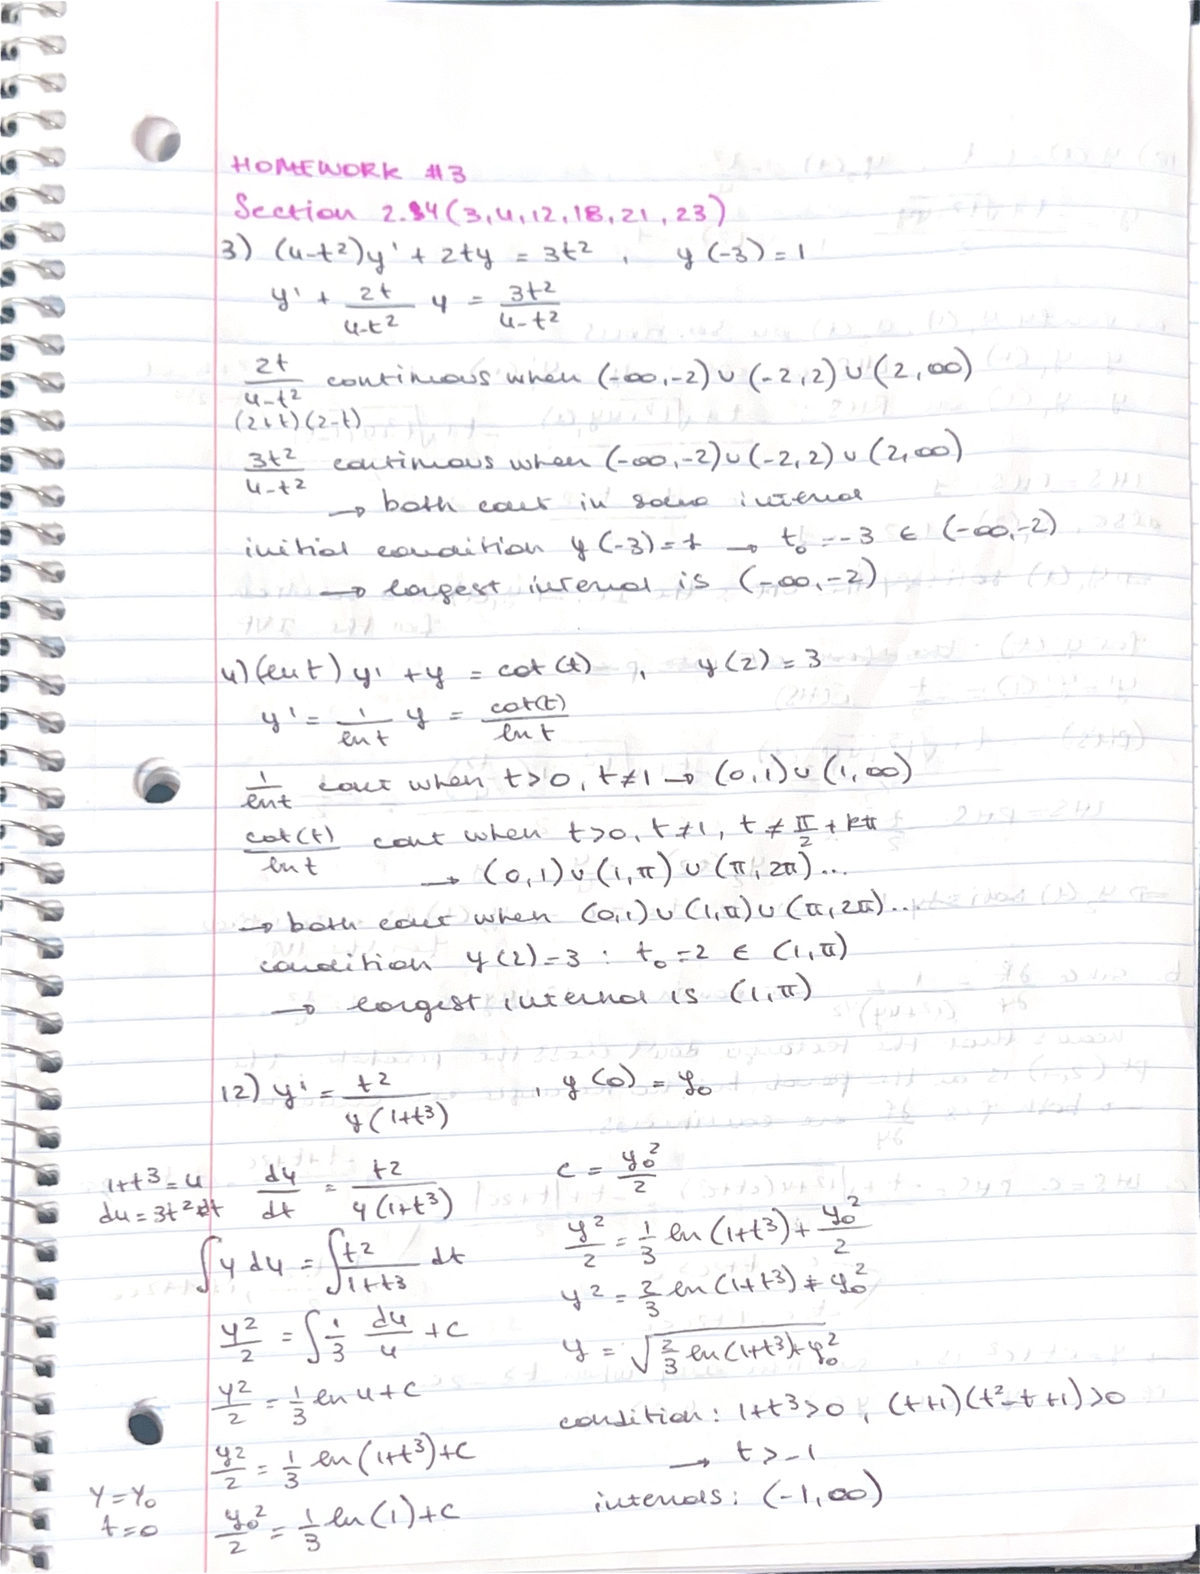 HOMEWORK #3
Section 2.4 (3,4,12,18,21,23)
3) (4-t²)y' + 2ty = 3t² , y(-3) = 1
y' + 2t/(4-t²) y = 3t²/(4-t²)
2t/(4-t²) continuous when (-∞,-2) ∪ (-2,2) ∪ (2,∞)
(2+t)(2-t)
3t²/(4-t²) continuous when (-∞,-2) ∪ (-2,2) ∪ (2,∞)
→ both cont in same interval
initial condition y(-3) = 1 → t₀ = -3 ∈ (-∞,-2)
→ largest interval is (-∞,-2)
4) (ln t) y' + y = cot(t) , y(2) = 3
y' = 1/ln t y = cot(t)/ln t
1/ln t cont when t>0, t≠1 → (0,1) ∪ (1,∞)
cot(t)/ln t cont when t>0, t≠1, t ≠ π/2 + kπ
→ (0,1) ∪ (1,π) ∪ (π,2π)...
→ both cont when (0,1) ∪ (1,π) ∪ (π,2π)..
condition y(2)=3 : t₀ = 2 ∈ (1,π)
→ largest interval is (1,π)
12) y' = t²/(y(1+t³)) , y(0) = y₀
1+t³ = u
du = 3t² dt
dy/dt = t²/(y(1+t³))
∫y dy = ∫t²/(1+t³) dt
y²/2 = ∫1/3 du/u + C
y²/2 = 1/3 ln u + C
y²/2 = 1/3 ln(1+t³) + C
y=y₀
t=0
y₀²/2 = 1/3 ln(1) + C
c = y₀²/2
y²/2 = 1/3 ln(1+t³) + y₀²/2
y² = 2/3 ln(1+t³) + y₀²
y = √(2/3 ln(1+t³) + y₀²)
condition: 1+t³>0, (t+1)(t²-t+1)>0
→ t>-1
intervals: (-1,∞)